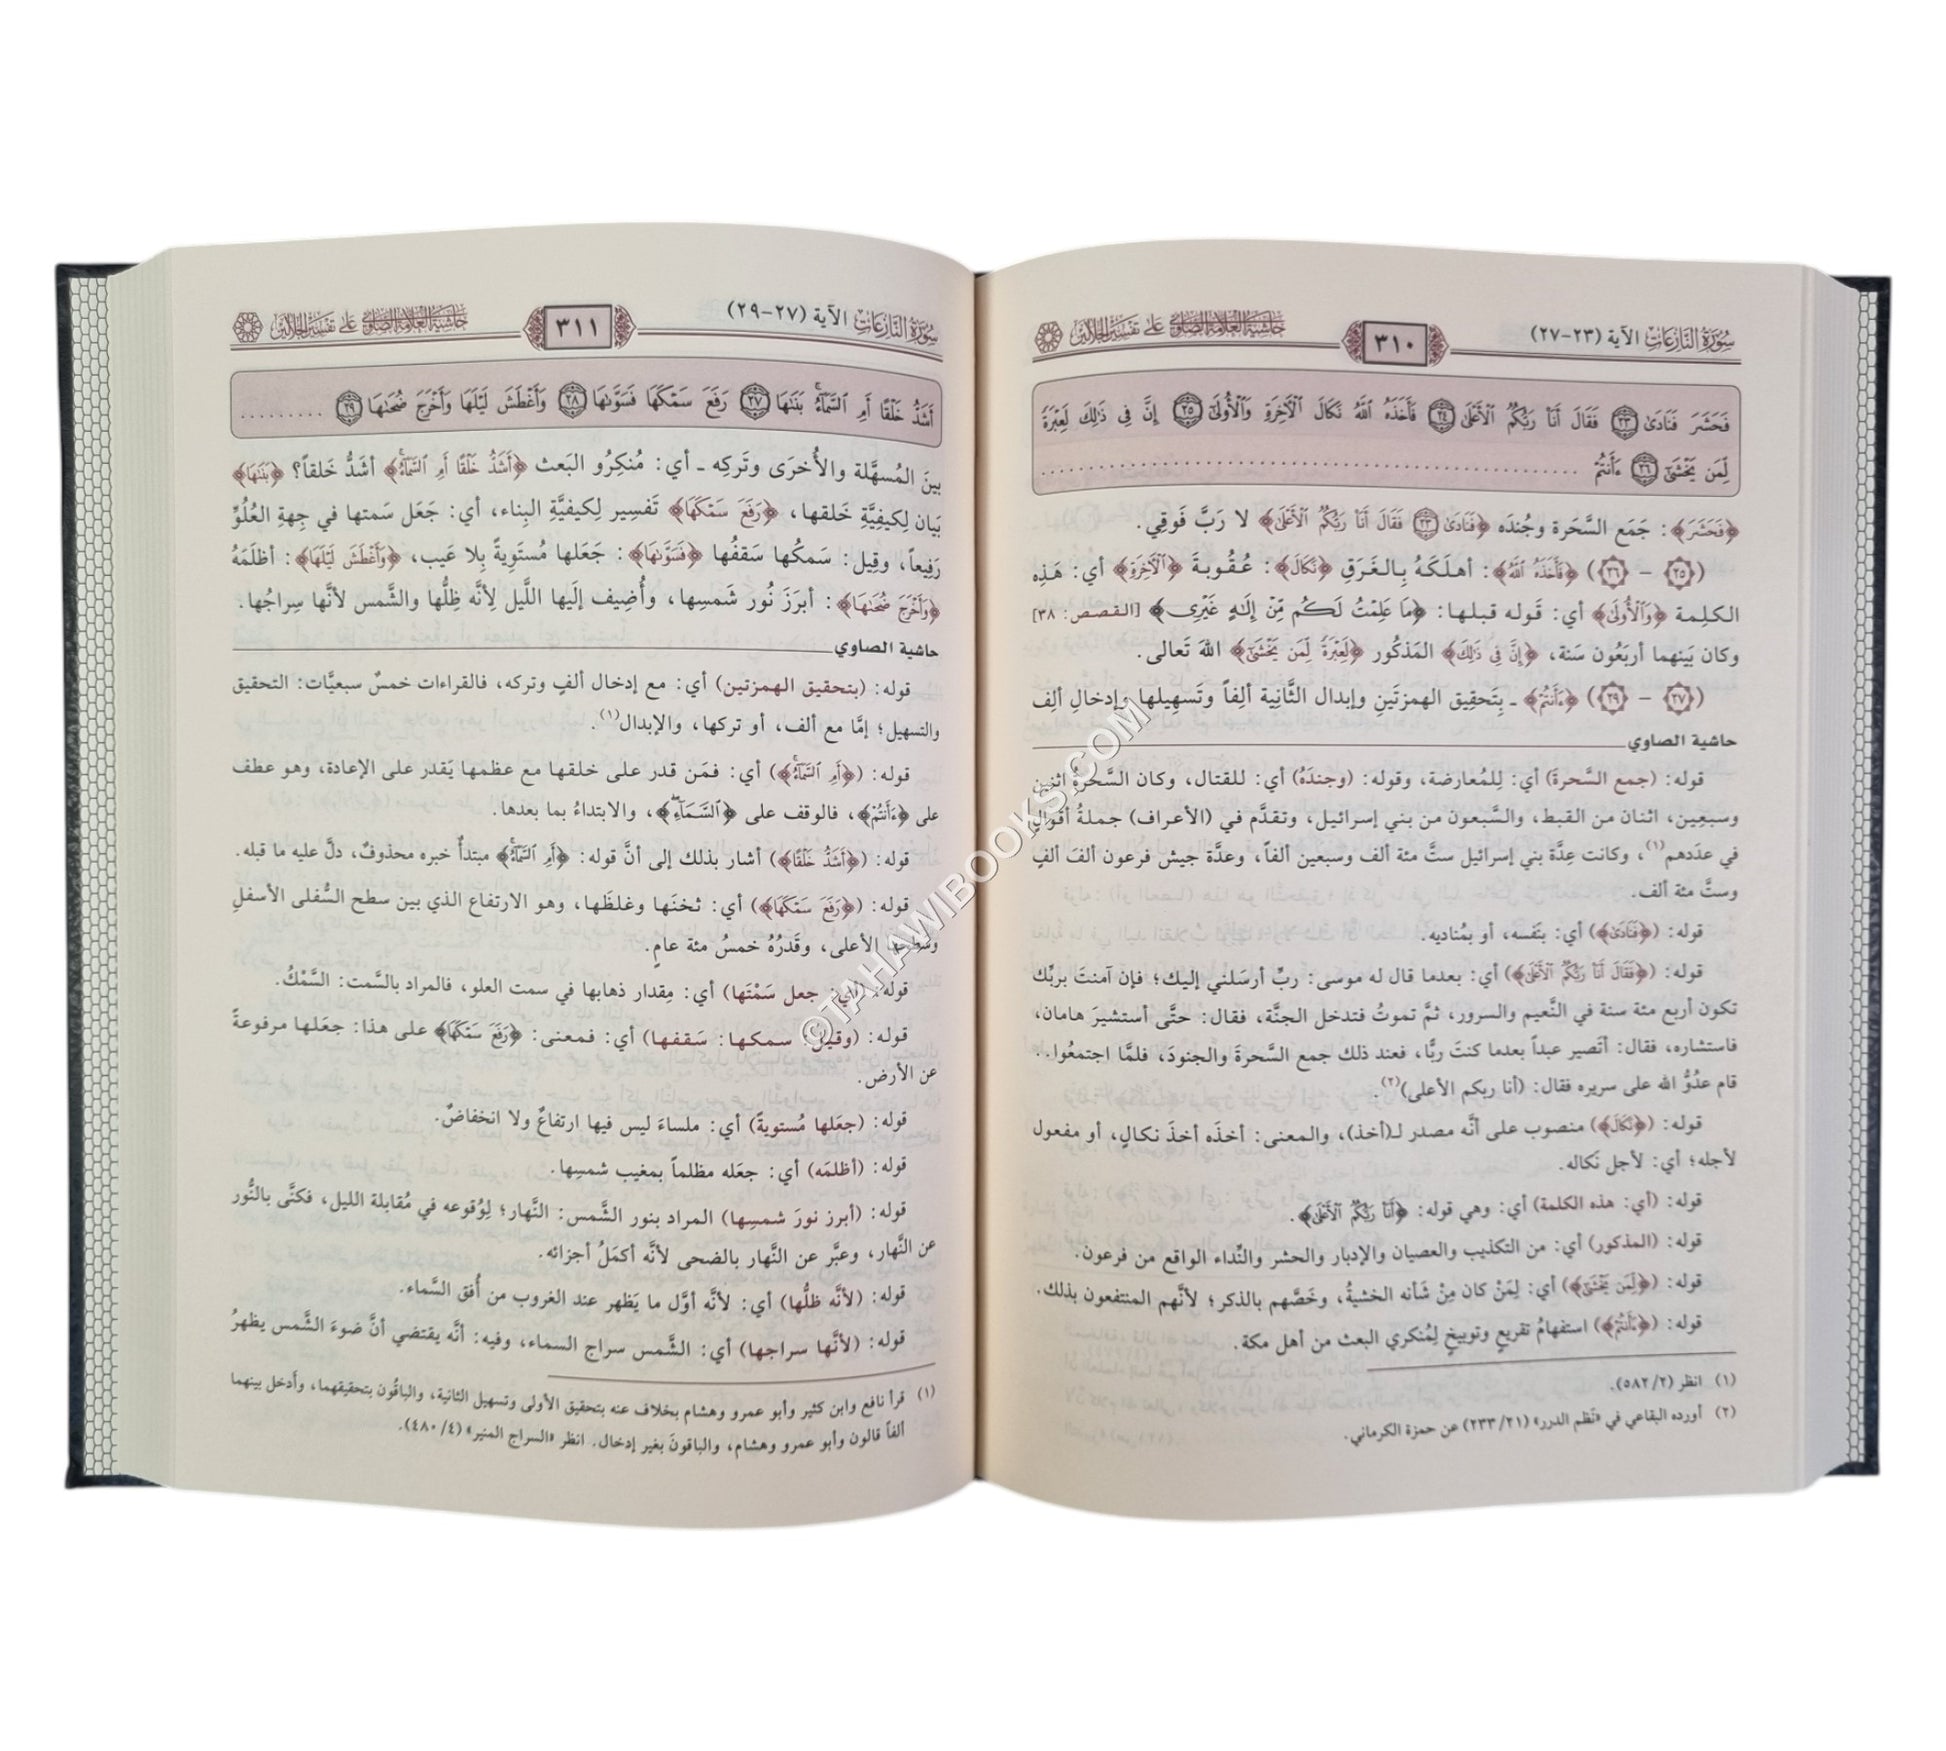 سورة النازعات الآية (٢٣-٢٧)
٣١٠
حاشية العلامة الصاوي على تفسير الجلالين
فَحَشَرَ فَنَادَىٰ ٢٣ فَقَالَ أَنَا۠ رَبُّكُمُ ٱلْأَعْلَىٰ ٢٤ فَأَخَذَهُ ٱللَّهُ نَكَالَ ٱلْآخِرَةِ وَٱلْأُولَىٰٓ ٢٥ إِنَّ فِى ذَٰلِكَ لَعِبْرَةً
لِّمَن يَخْشَىٰٓ ٢٦ ءَأَنتُمْ ........
﴿فَحَشَرَ﴾: جَمَع السَّحَرة وجُندَه ﴿فَنَادَىٰ ٢٣ فَقَالَ أَنَا۠ رَبُّكُمُ ٱلْأَعْلَىٰ﴾ لا رَبَّ فَوقِي.
(٢٥ - ٢٦) ﴿فَأَخَذَهُ ٱللَّهُ﴾: أهلَكَهُ بِالغَرَقِ ﴿نَكَالَ﴾: عُقُوبةَ ﴿ٱلْآخِرَةِ﴾ أي: هَذِه
الكلِمة ﴿وَٱلْأُولَىٰٓ﴾ أي: قَوله قبلها: ﴿مَا عَلِمْتُ لَكُم مِّنْ إِلَٰهٍ غَيْرِى﴾ [القصص: ٣٨]
وكان بَينهما أربَعُون سَنة، ﴿إِنَّ فِى ذَٰلِكَ﴾ المَذكُور ﴿لَعِبْرَةً لِّمَن يَخْشَىٰٓ﴾ اللهَ تَعالى.
(٢٧ - ٢٩) ﴿ءَأَنتُمْ﴾ ـ بِتَحقِيق الهمزتَينِ وإبدال الثَّانِية ألِفاً وتَسهِيلها وإدخال ألِف
حاشية الصاوي
قوله: (جمع السَّحرة) أي: لِلمُعارضة، وقوله: (وجندَهُ) أي: للقتال، وكان السَّحرةُ اثنين
وسبعِين، اثنان من القبط، والسَّبعون من بني إسرائيل، وتقدَّم في (الأعراف) جملةُ أقوالٍ
في عدَدهم(١)، وكانت عِدَّة بني إسرائيل ستَّ مئة ألف وسبعين ألفاً، وعدَّة جيش فرعون ألفَ ألفٍ
وستَّ مئة ألف.
قوله: (﴿فَنَادَىٰ﴾) أي: بنَفسه، أو بمُناديه.
قوله: (﴿فَقَالَ أَنَا۠ رَبُّكُمُ ٱلْأَعْلَىٰ﴾) أي: بعدما قال له موسى: ربِّ أرسَلني إليك؛ فإن آمنتَ بربِّك
تكون أربع مئة سنة في النَّعيم والسرور، ثمَّ تموتُ فتدخل الجنَّة، فقال: حتَّى أستشيرَ هامان،
فاستشاره، فقال: أتَصير عبداً بعدما كنتَ ربًّا، فعند ذلك جمع السَّحرةَ والجنودَ، فلمَّا اجتمعُوا..
قام عدُوُّ الله على سريره فقال: (أنا ربكم الأعلى)(٢).
قوله: (﴿نَكَالَ﴾) منصوب على أنَّه مصدر لـ(أخذ)، والمعنى: أخذَه أخذَ نكالٍ، أو مفعول
لأجله؛ أي: لأجل نَكاله.
قوله: (أي: هذه الكلمة) أي: وهي قوله: ﴿أَنَا۠ رَبُّكُمُ ٱلْأَعْلَىٰ﴾.
قوله: (المذكور) أي: من التكذيب والعصيان والإدبار والحشر والنِّداء الواقع من فرعون.
قوله: (﴿لِّمَن يَخْشَىٰٓ﴾) أي: لِمَنْ كان مِنْ شَأنه الخشيةُ، وخَصَّهم بالذكر؛ لأنَّهم المنتفعون بذلك.
قوله: (﴿ءَأَنتُمْ﴾) استفهامُ تقريعٍ وتوبيخٍ لِمُنكري البعث من أهل مكة.
(١) انظر (٥٨٢/٢).
(٢) أورده البقاعي في «نَظم الدرر» (٢٣٣/٢١) عن حمزة الكرماني.
سورة النازعات الآية (٢٧-٢٩)
٣١١
حاشية العلامة الصاوي على تفسير الجلالين
أَشَدُّ خَلْقًا أَمِ ٱلسَّمَآءُ ۚ بَنَىٰهَا ٢٧ رَفَعَ سَمْكَهَا فَسَوَّىٰهَا ٢٨ وَأَغْطَشَ لَيْلَهَا وَأَخْرَجَ ضُحَىٰهَا ٢٩ .........
بينَ المُسهَّلة والأُخرَى وتَركِه ـ أي: مُنكِرُو البَعث ﴿أَشَدُّ خَلْقًا أَمِ ٱلسَّمَآءُ﴾ أشَدُّ خَلقاً؟ ﴿بَنَىٰهَا﴾
بَيان لِكيفِيَّةِ خَلقها، ﴿رَفَعَ سَمْكَهَا﴾ تَفسِير لِكيفِيَّةِ البِناء، أي: جَعَل سَمتها في جِهةِ العُلُوِّ
رَفِيعاً، وقِيل: سَمكُها سَقفُها ﴿فَسَوَّىٰهَا﴾: جَعَلها مُستَوِيةً بِلا عَيب، ﴿وَأَغْطَشَ لَيْلَهَا﴾: أظلَمَهُ
﴿وَأَخْرَجَ ضُحَىٰهَا﴾: أبرَزَ نُور شَمسِها، وأُضِيف إلَيها اللَّيل لِأنَّه ظِلُّها والشَّمس لأنَّها سِراجُها.
حاشية الصاوي
قوله: (بتحقيق الهمزتين) أي: مع إدخال ألفٍ وتركه، فالقراءات خمسٌ سبعيَّات: التحقيق
والتسهيل؛ إمَّا مع ألف، أو تركها، والإبدال(١).
قوله: (﴿أَمِ ٱلسَّمَآءُ﴾) أي: فمَن قدر على خلقها مع عظمها يَقدر على الإعادة، وهو عطف
على ﴿ءَأَنتُمْ﴾، فالوقف على ﴿ٱلسَّمَآءُ﴾، والابتداءُ بما بعدها.
قوله: (﴿أَشَدُّ خَلْقًا﴾) أشار بذلك إلى أنَّ قوله: ﴿أَمِ ٱلسَّمَآءُ﴾ مبتدأٌ خبره محذوفٌ، دلَّ عليه ما قبله.
قوله: (﴿رَفَعَ سَمْكَهَا﴾) أي: ثخنَها وغلظَها، وهو الارتفاع الذي بين سطح السُّفلى الأسفلِ
وسَطحها الأعلى، وقَدرُهُ خمسُ مئة عامٍ.
قوله: (أي: جعل سَمْتَها) أي: مِقدار ذهابها في سمت العلو، فالمراد بالسَّمت: السَّمْكُ.
قوله: (وقيل: سمكها: سَقفها) أي: فمعنى: ﴿رَفَعَ سَمْكَهَا﴾ على هذا: جعَلها مرفوعةً
عن الأرض.
قوله: (جعَلها مُستويةً) أي: ملساءَ ليس فيها ارتفاعٌ ولا انخفاضٌ.
قوله: (أظلمَه) أي: جعَله مظلماً بمغيب شمسِها.
قوله: (أبرز نورَ شمسِها) المراد بنور الشَّمس: النَّهار؛ لِوُقوعه في مُقابلة الليل، فكنَّى بالنُّور
عن النَّهار، وعبَّر عن النَّهار بالضحى لأنَّه أكمَلُ أجزائه.
قوله: (لأنَّه ظلُّها) أي: لأنَّه أوَّل ما يَظهر عند الغروب من أُفق السَّماء.
قوله: (لأنَّها سراجها) أي: الشَّمس سراج السماء، وفيه: أنَّه يقتضي أنَّ ضوءَ الشَّمس يظهرُ
(١) قرأ نافع وابن كثير وأبو عمرو وهشام بخلاف عنه بتحقيق الأولى وتسهيل الثانية، والباقُون بتحقيقهما، وأدخل بينهما
ألفاً قالون وأبو عمرو وهشام، والباقونَ بغير إدخال. انظر «السراج المنير» (٤٨٠/٤).
©TAHAWIBOOKS.COM